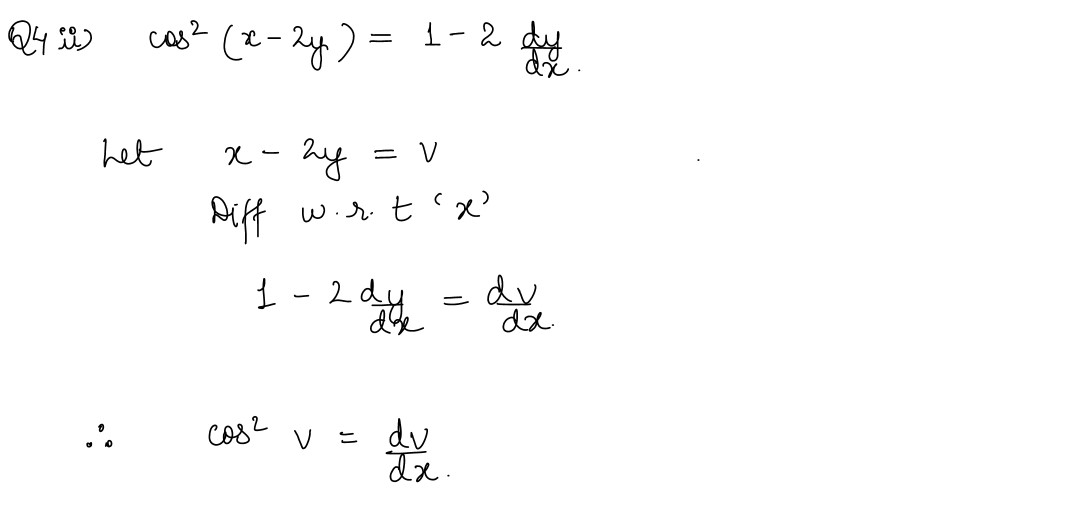 Q4 ii) cos² (x - 2y) = 1 - 2 dy/dx.
Let x - 2y = v
Diff w.r.t 'x'
1 - 2 dy/dx = dv/dx.
∴ cos² v = dv/dx.